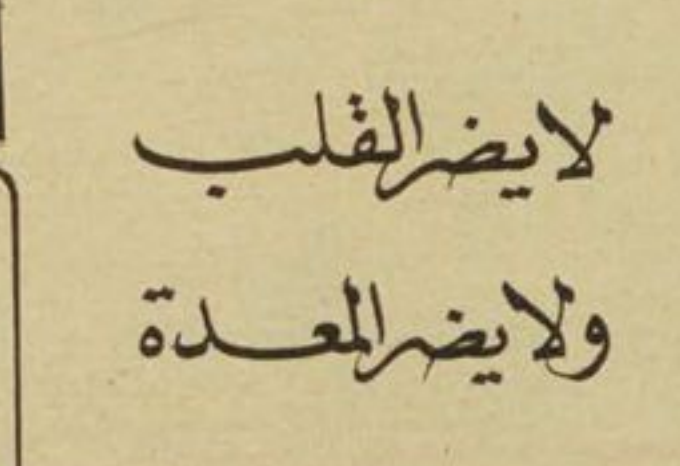 لا يضر القلب
ولا يضر المعدة